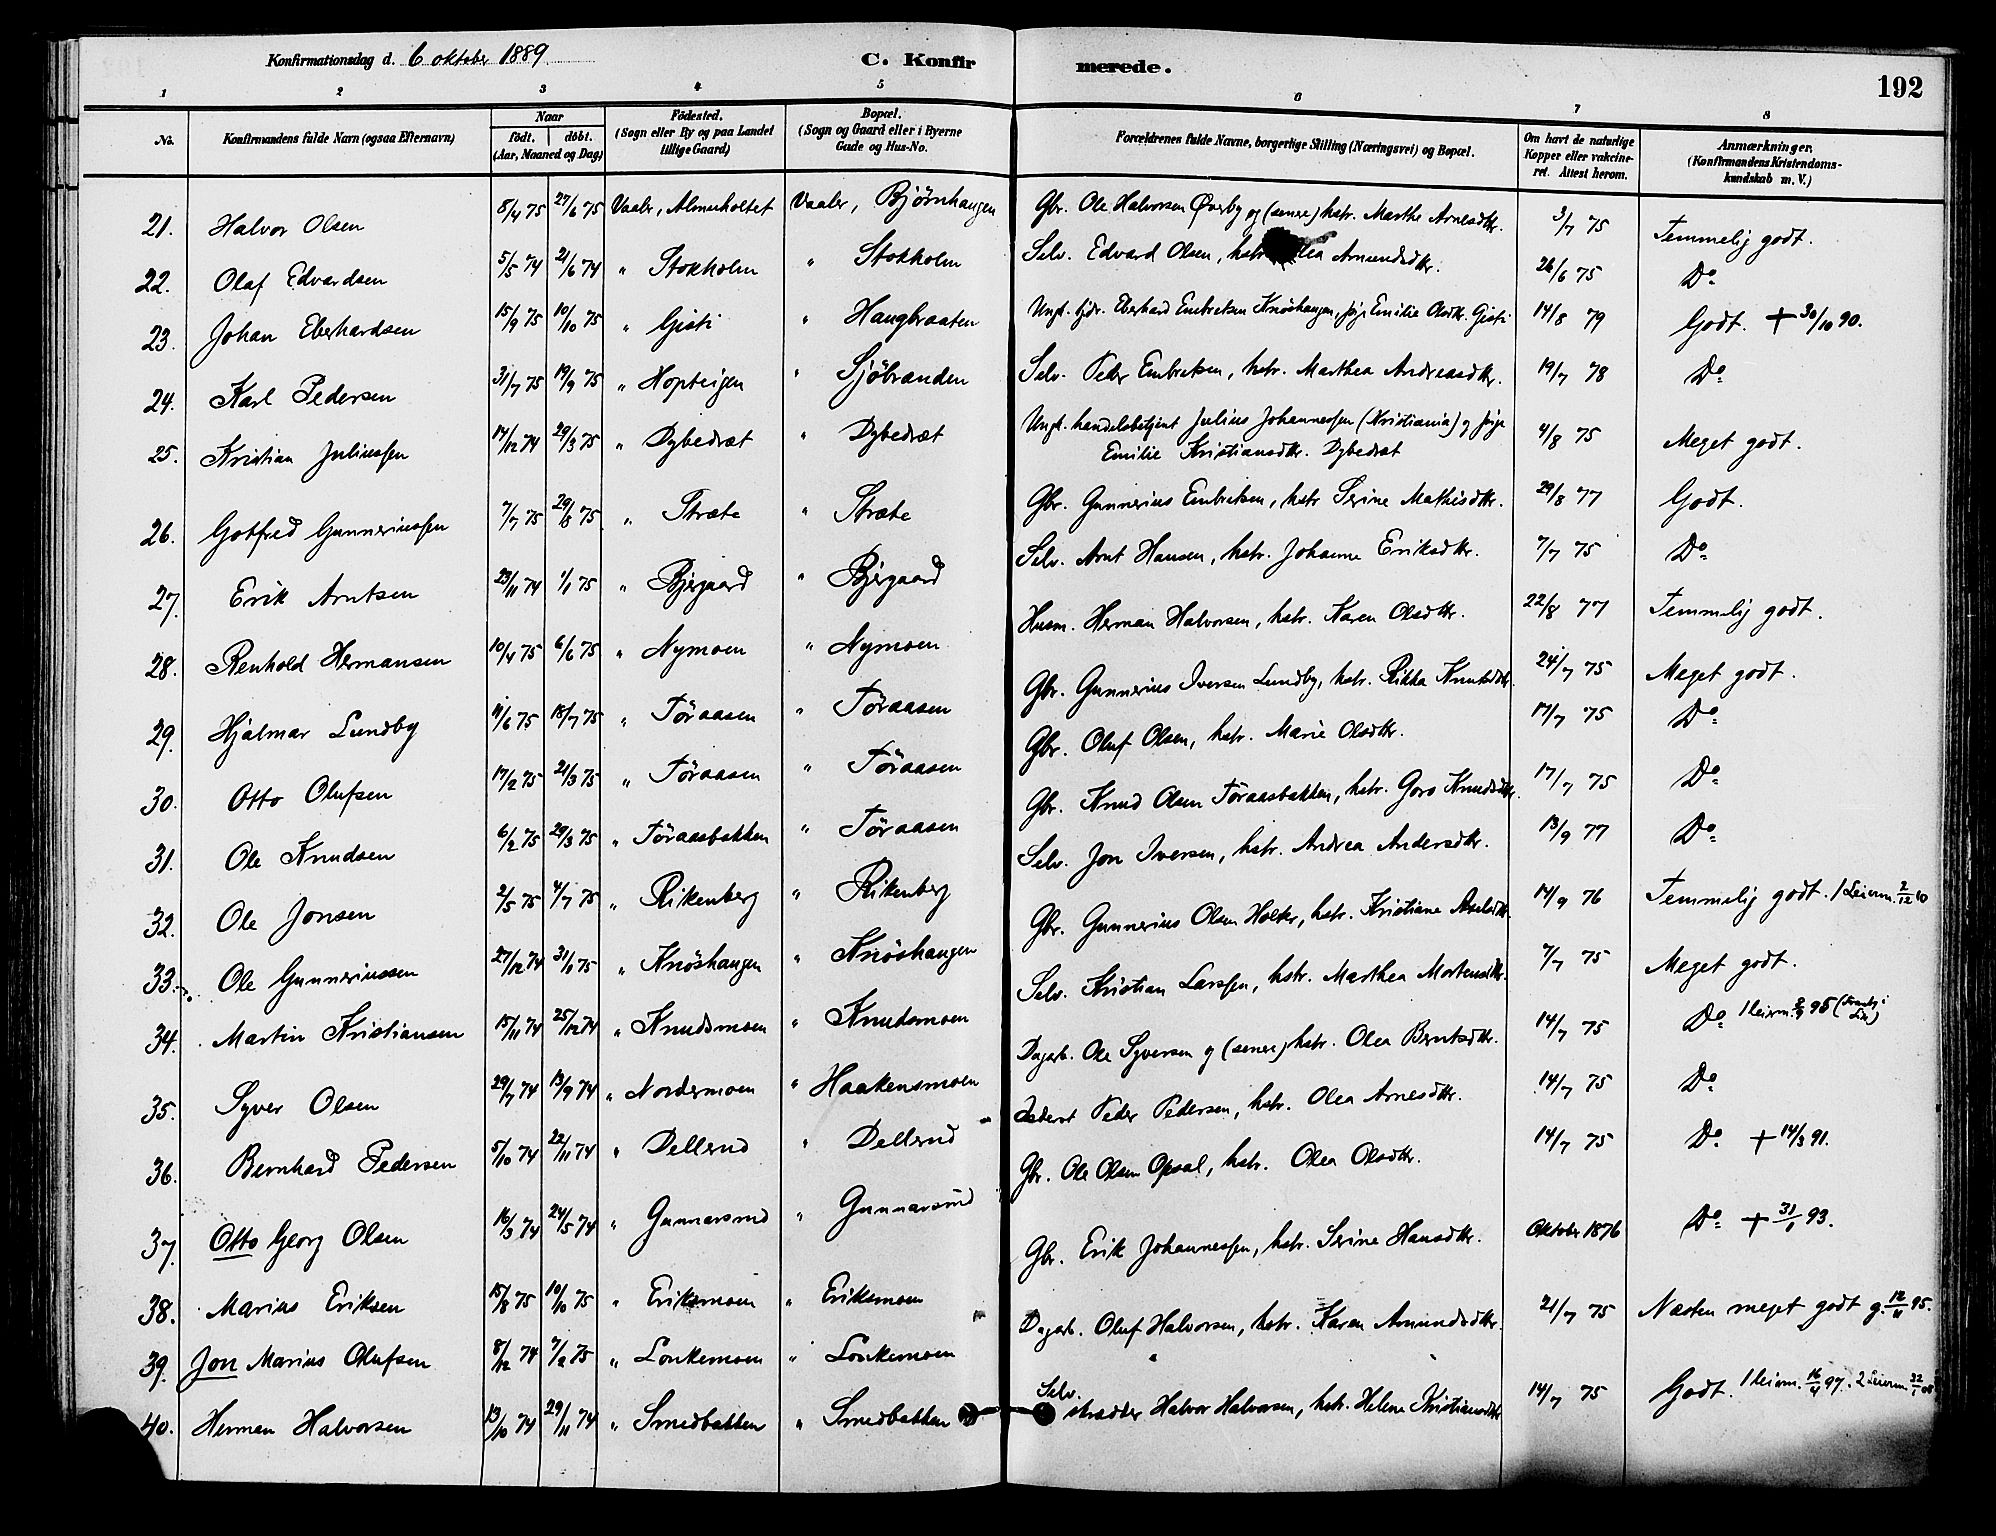 Konfirmationsdag d. 6 oktober 1889. C. Konfirmerede. 192
1 2 3 4 5 6 7 8
No. Konfirmandens fulde Navn (ogsaa Efternavn) Naar født. døbt. (Aar, Maaned og Dag) Fødested. (Sogn eller By og paa Landet tillige Gaard) Bopæl. (Sogn og Gaard eller i Byerne Gade og Hus-No. Forældrenes fulde Navne, borgerlige Stilling (Næringsvei) og Bopæl. Om havt de naturlige Kopper eller vakcineret. Attest herom. Anmærkninger. (Konfirmandens Kristendomskundskab m. V.)
21. Halvor Olsen 8/4 75 27/6 75 Vaaler, Almerholtet Vaaler, Bjørnhaugen Gbr. Ole Halvorsen Øverby og (senere) hstr. Marthe Arnesdttr. 3/7 75 Temmelig godt.
22. Olaf Edvardsen 5/5 74 21/6 74 " Stokholm " Stokholm Selv. Edvard Olsen, hstr. Amundsdttr. 26/6 75 Do
23. Johan Eberhardsen 15/9 75 10/10 75 " Gisti " Haugbraaten Ungk. Eberhard Embretsen Knöshaugen, pige Emilie Olsdtr. Gisti 14/8 79 Godt. + 30/10 90.
24. Karl Pedersen 31/7 75 19/9 75 " Hopteigen " Sjöbranden Selv. Peder Embretsen, hstr. Marthea Andreasdttr. 19/7 78 Do
25. Kristian Juliussen 14/12 74 29/3 75 " Dybedræt " Dybedræt Ungk. handelsbetjent Julius Johannessen (Kristiania) og pige
Emilie Kristiansdttr. Dybedræt 4/8 75 Meget godt.
26. Gotfred Gunneriussen 7/7 75 29/8 75 " Stræte " Stræte Gbr. Gunnerius Embretsen, hstr Serine Mathisdttr. 29/8 77 Godt.
27. Erik Arntsen 23/11 74 1/1 75 " Bjergaard " Bjergaard Selv. Arnt Hansen, hstr. Johanne Eriksdttr. 7/7 75 Do
28. Renhold Hermansen 10/4 75 6/6 75 " Nymoen " Nymoen Husm. Herman Halvorsen, hstr. Karen Olsdttr. 22/8 77 Temmelig godt.
29. Hjalmar Lundby 11/6 75 18/7 75 " Töraasen " Töraasen Gbr. Gunnerius Iversen Lundby, hstr. Rikka Knutsdttr. 24/7 75 Meget godt.
30. Otto Olufsen 17/2 75 21/3 75 " Töraasen " Töraasen Gbr. Oluf Olsen, hstr. Marie Olsdttr. 17/7 75 Do
31. Ole Knudsen 6/2 75 29/3 75 " Töraasbakken " Töraasen Gbr. Knud Olsen Töraasbakken, hstr. Goro Knudsdttr. 17/7 75 Do
32. Ole Jonsen 2/5 75 4/7 75 " Rikenberg " Rikenberg Selv. Jon Iversen, hstr. Andrea Andersdttr. 13/9 77 Do
33. Ole Gunneriussen 27/12 74 31/1 75 " Knöshaugen " Knöshaugen Gbr. Gunnerius Olsen Holter, hstr. Kristiane Axelsdttr. 14/9 76 Temmelig godt. 1 Leierm. 2/12 10
34. Martin Kristiansen 15/11 74 25/12 74 " Knudsmoen " Knudsmoen Selv. Kristian Larssen, hstr. Marthea Mortensdttr. 7/7 75 Meget godt.
35. Syver Olsen 29/7 74 13/9 74 " Nordermoen " Haakensmoen Dagarb. Ole Syversen og (senere) hstr. Olea Berntsdttr. 14/7 75 Do 1 leierm. 95
36. Bernhard Pedersen 5/10 74 22/11 74 " Dellerud " Dellerud Peder Pedersen, hstr. Olea Arnesdttr. 14/7 75 Do
37. Otto Georg Olsen 16/3 74 24/5 74 " Gunnarsrud " Gunnarsrud Gbr. Ole Olsen Opsal, hstr. Olea Olsdttr. 14/7 75 Do + 14/3 91.
38. Marius Eriksen 15/8 75 10/10 75 " Eriksmoen " Eriksmoen Gbr. Erik Johannessen, hstr. Serine Hansdttr. Oktober 1876 Do + 31/1 93.
39. Jon Marius Olufsen 8/12 74 7/2 75 " Lonkemoen " Lonkemoen Dagarb. Oluf Halvorsen, hstr. Karen Amundsdttr. 21/7 75 Næsten meget godt g. 12/11 95.
40. Herman Halvorsen 13/10 74 29/11 74 " Smedbakken " Smedbakken Selv. skrædder Halvor Halvorsen, hstr. Helene Kristiansdttr 14/7 75 Godt. 1 leierm. 16/4 97. 2 Leierm.